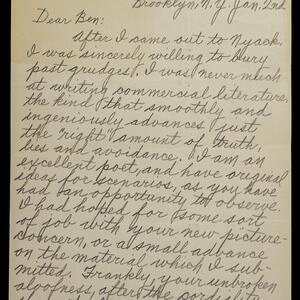 Brooklyn, N.Y. Jan. 2nd
Dear Ben:
After I came out to Nyack,
I was sincerely willing to bury
past grudges. I was never much
at writing commercial literature,
the kind that smoothly and
ingeniously advances just
the "right" amount of truth,
lies and avoidance. I am an
excellent poet, and have original
ideas for scenarios, as you have
had an opportunity to observe.
I had hoped for some sort
of job with your new picture-
concern, or a small advance
on the material which I sub-
mitted. Frankly, your unbroken
aloofness, after the cordiality